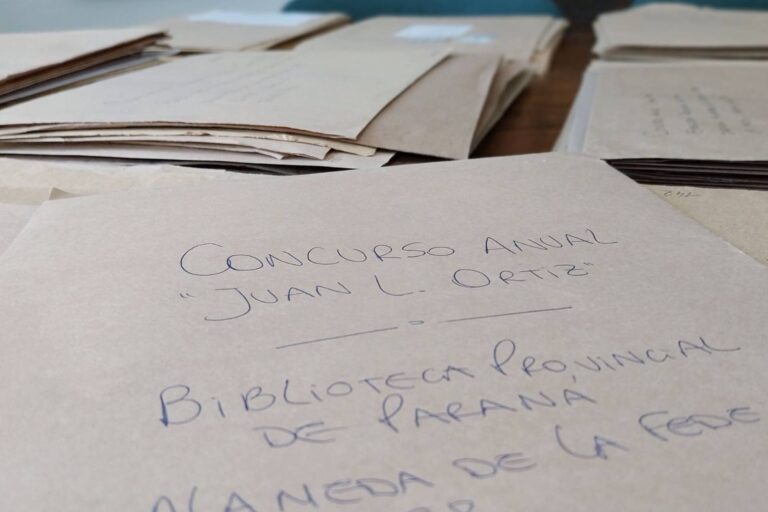 CONCURSO ANUAL
"JUAN L. ORTIZ"
BIBLIOTECA PROVINCIAL
DE PARANÁ
ALAMEDA DE LA FEDE